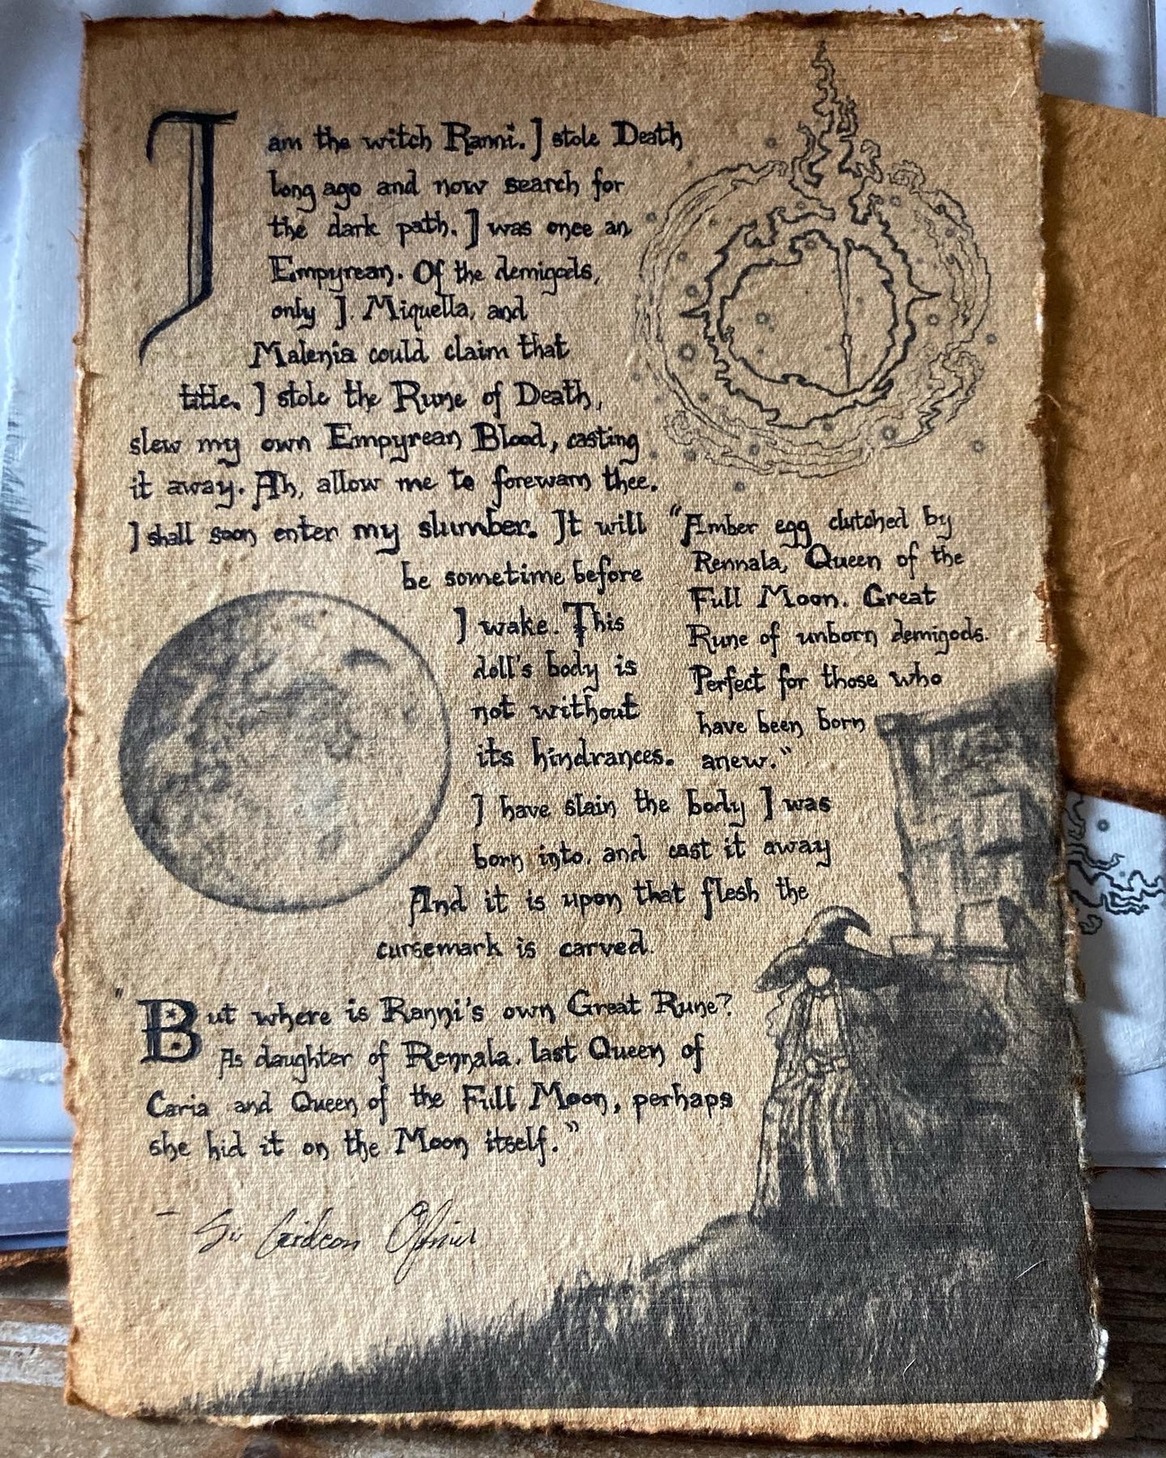 I am the witch Ranni. I stole Death
long ago and now search for
the dark path. I was once an
Empyrean. Of the demigods,
only I, Miquella, and
Malenia could claim that
title. I stole the Rune of Death,
slew my own Empyrean Blood, casting
it away. Ah, allow me to forewarn thee.
I shall soon enter my slumber. It will
be sometime before
I wake. This
doll's body is
not without
its hindrances.
"Amber egg clutched by
Rennala, Queen of the
Full Moon. Great
Rune of unborn demigods.
Perfect for those who
have been born
anew."
I have slain the body I was
born into, and cast it away
And it is upon that flesh the
cursemark is carved.
"But where is Ranni's own Great Rune?
As daughter of Rennala, last Queen of
Caria and Queen of the Full Moon, perhaps
she hid it on the Moon itself."
- Sir Gideon Ofnir